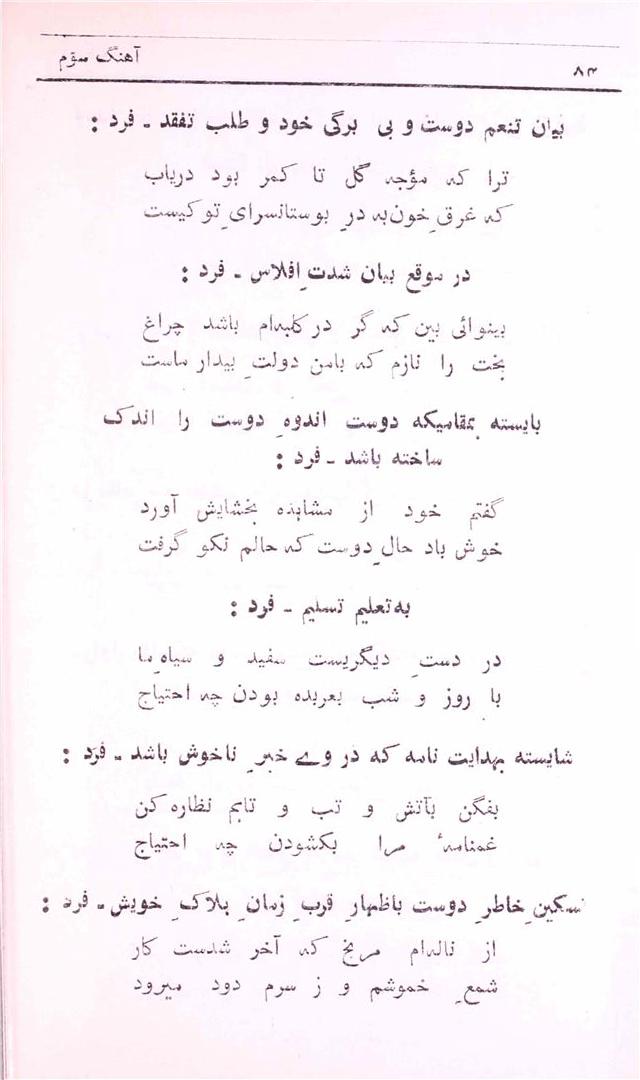 ۸۴ آهنگ سوّم
بیان تنعم دوست و بی برگی خود و طلب تفقد ـ فرد :
ترا که مؤجه گل تا کمر بود دریاب
که غرقِ خون به درِ بوستانسرایِ تو کیست
در موقع بیان شدتِ افلاس ـ فرد :
بینوائی بین که گر در کلبه‌ام باشد چراغ
بخت را نازم که بامن دولتِ بیدار ماست
بایسته بمقامیکه دوست اندوهِ دوست را اندک
ساخته باشد ـ فرد :
گفتم خود از مشاهده بخشایش آورد
خوش باد حالِ دوست که حالم نکو گرفت
به تعلیم تسلیم ـ فرد :
در دستِ دیگریست سفید و سیاهِ ما
با روز و شب بعربده بودن چه احتیاج
شایسته بهدایت نامه که در وے خبرِ ناخوش باشد ـ فرد :
بفگن بآتش و تب و تابم نظاره کن
غمنامهٔ مرا بکشودن چه احتیاج
تسکینِ خاطرِ دوست باظهارِ قربِ زمانِ هلاکِ خویش ـ فرد :
از ناله‌ام مرنج که آخر شدست کار
شمعِ خموشم و ز سرم دود میرود